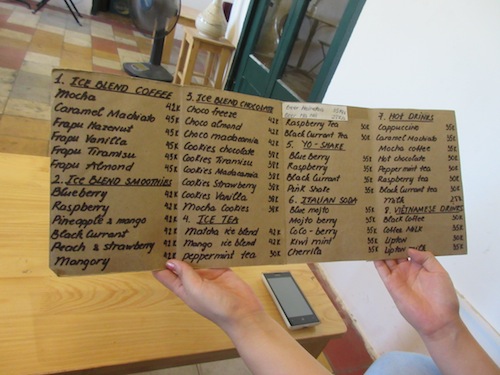 1. ICE BLEND COFFEE
Mocha 42k
Caramel Machiato 42k
Frapu Hazenut 42k
Frapu Vanilla 42k
Frapu Tiramisu 42k
Frapu Almond 45k
2. ICE BLEND SMOOTHIES
Blueberry 42k
Raspberry 42k
Pineapple & mango 42k
Black Currant 42k
Peach & strawberry 42k
Mangory
3. ICE BLEND CHOCOLATE
Choco freeze 42k
Choco almond 42k
Choco macdaemia
Cookies chocolate
Cookies Tiramisu
Cookies Madacamia
Cookies Strawberry 38k
Cookies Vanilla 38k
Mocha Cookies 38k
4. ICE TEA
Matcha ice blend 42k
Mango ice blend 42k
peppermint tea 30k
Raspberry Tea
Black Currant Tea 30k
5. YO-SHAKE
Blueberry 35k
Raspberry 35k
Black Currant 35k
Pink Shake 35k
6. ITALIAN SODA
Blue mojto 35k
Mojto berry 35k
CoCo-berry 35k
Kiwi mint 35k
Cherrita 35k
7. HOT DRINKS
Cappuccino 35k
Caramel Machiato 35k
Mocha coffee 35k
Hot chocolate 35k
Peppermint tea 30k
Raspberry tea 30k
Black Currant tea 30k
Milk 25k
8. VIETNAMESE DRINKS
Black Coffee 30k
Coffee MILK 35k
Lipton 30k
Lipton milk 35k